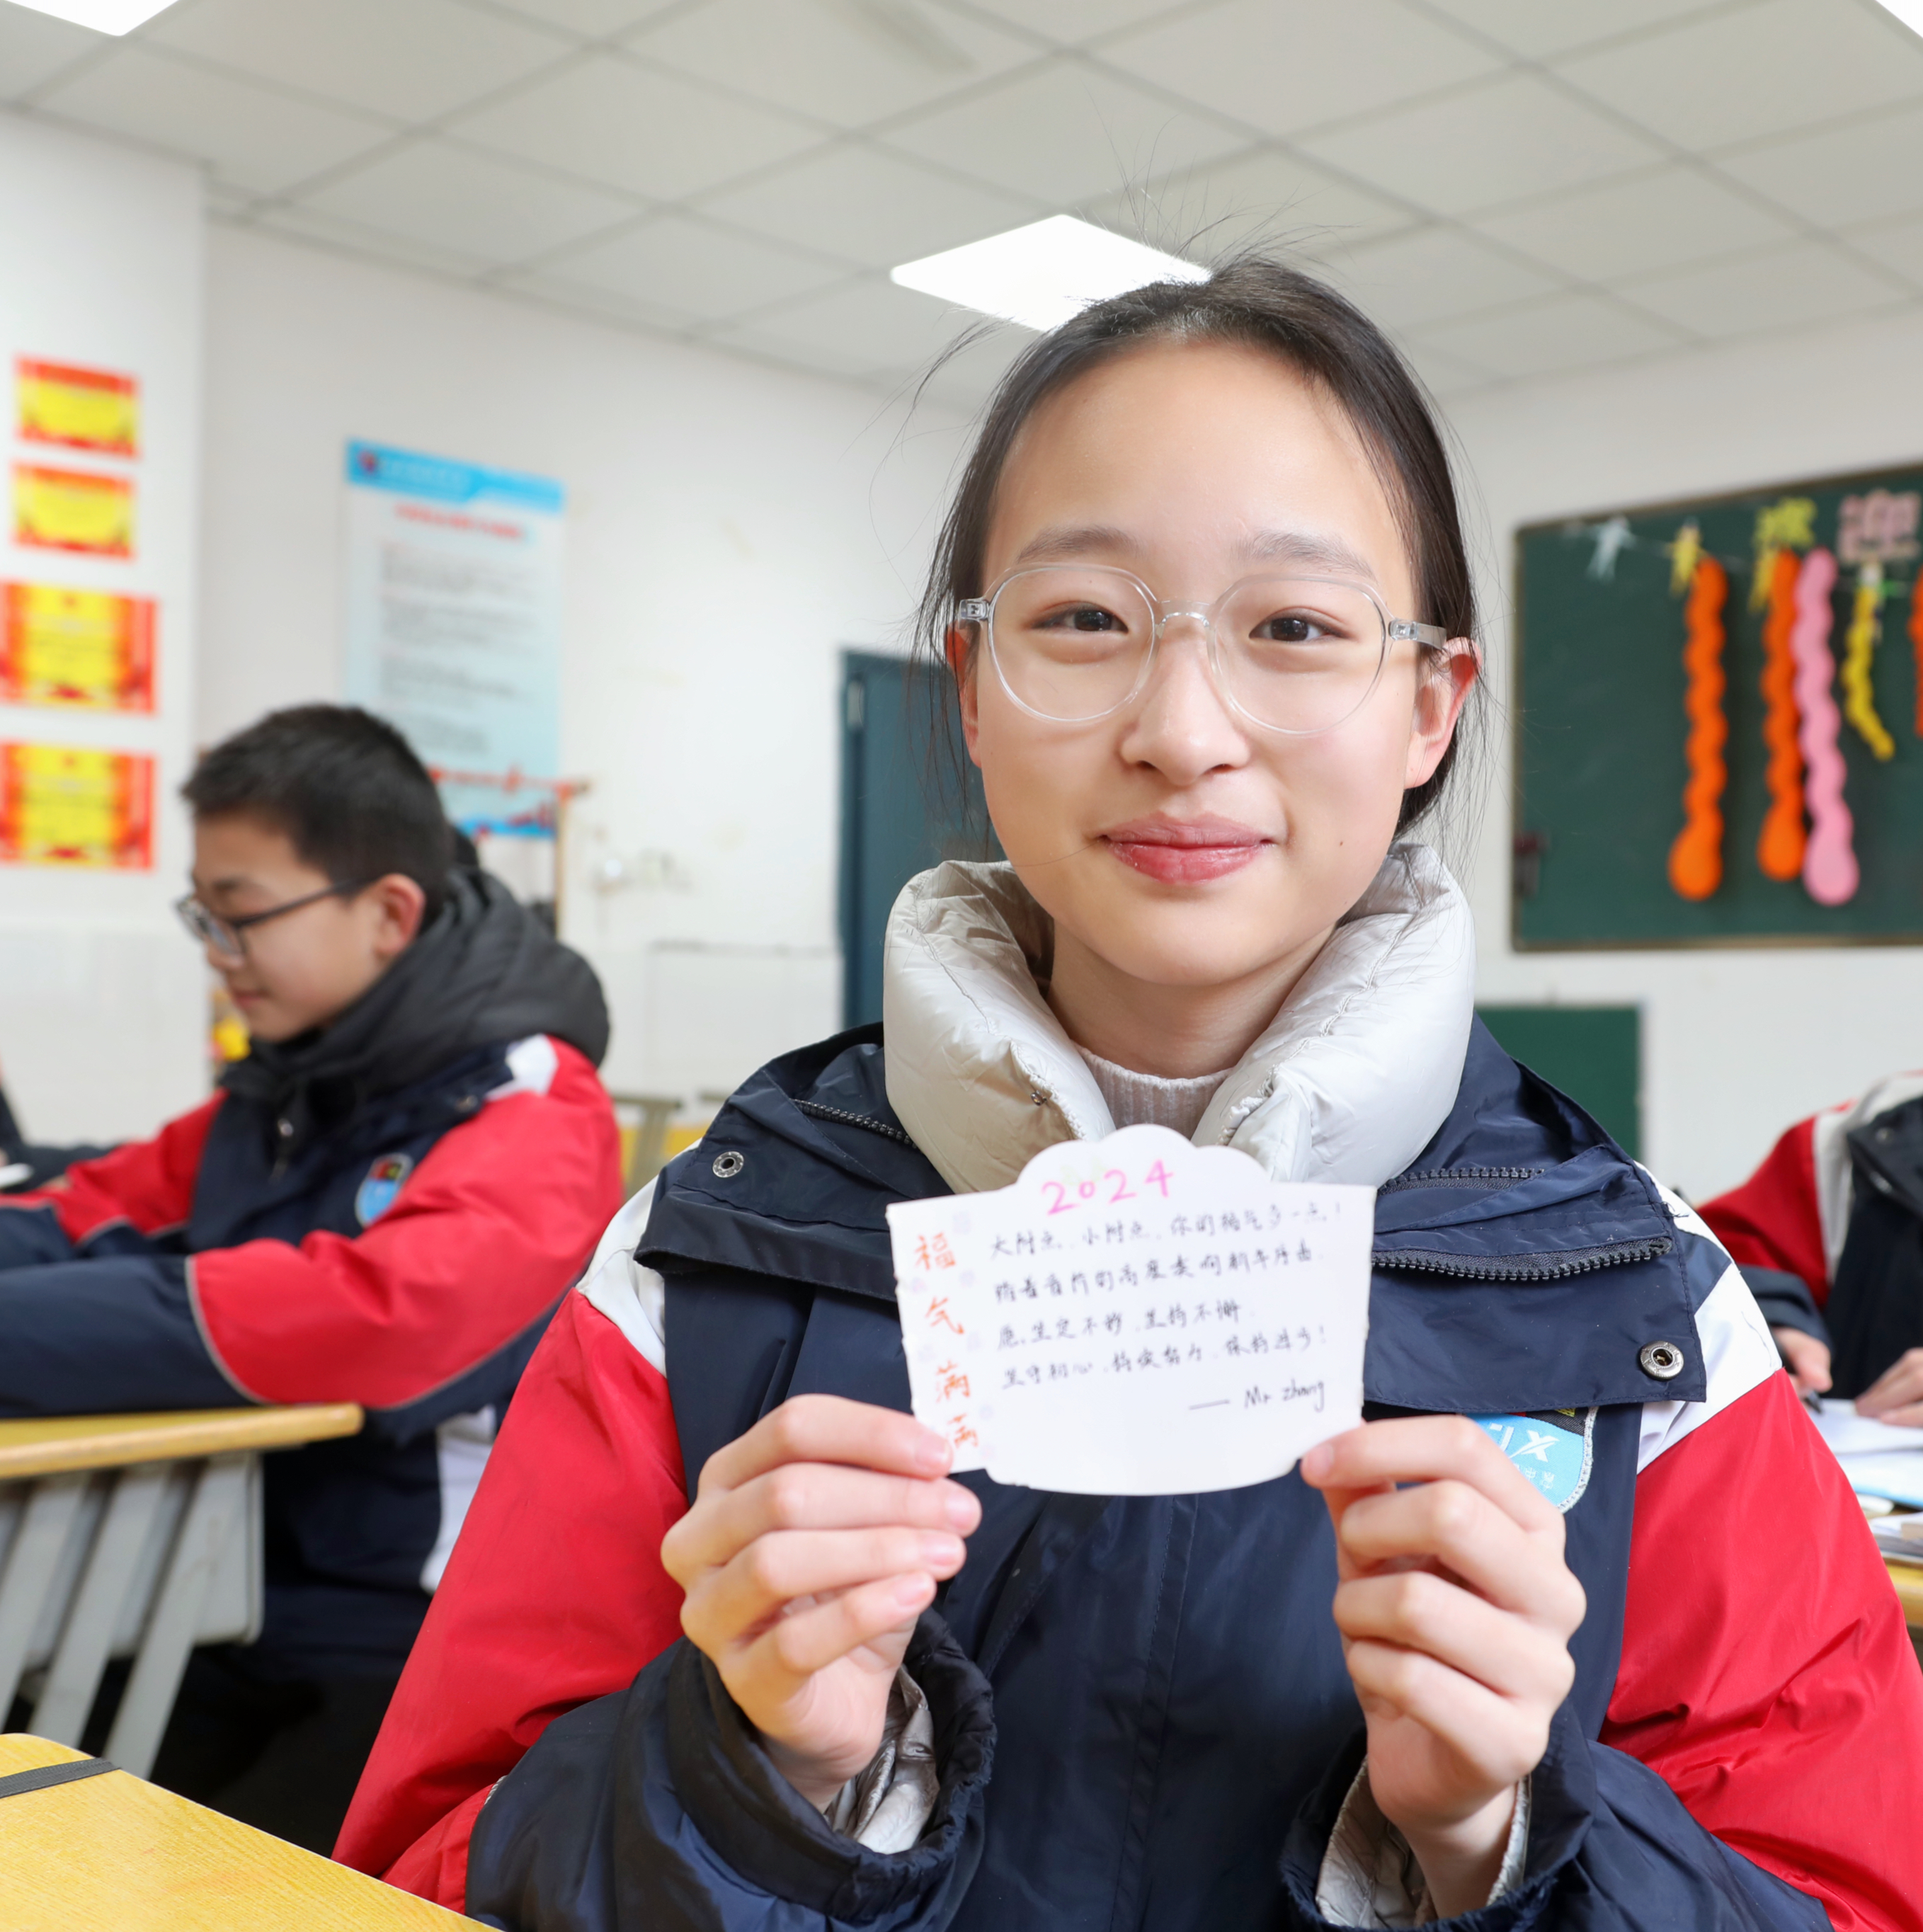 欢
迎
2024
福气满满
大附点、小附点、你的福气多一点！
踏着首阶的高度奏向新年序曲
愿,坚定不移、坚持不懈.
坚守初心、持续努力、保持进步！
—— Mr zhang